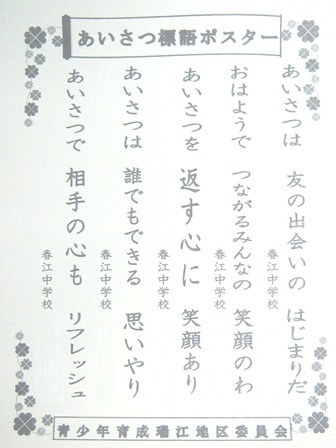 あいさつ標語ポスター
あいさつは 友の出会いの はじまりだ
春江中学校
おはようで つながるみんなの 笑顔のわ
春江中学校
あいさつを 返す心に 笑顔あり
春江中学校
あいさつは 誰でもできる 思いやり
春江中学校
あいさつで 相手の心も リフレッシュ
春江中学校
青少年育成瑞江地区委員会